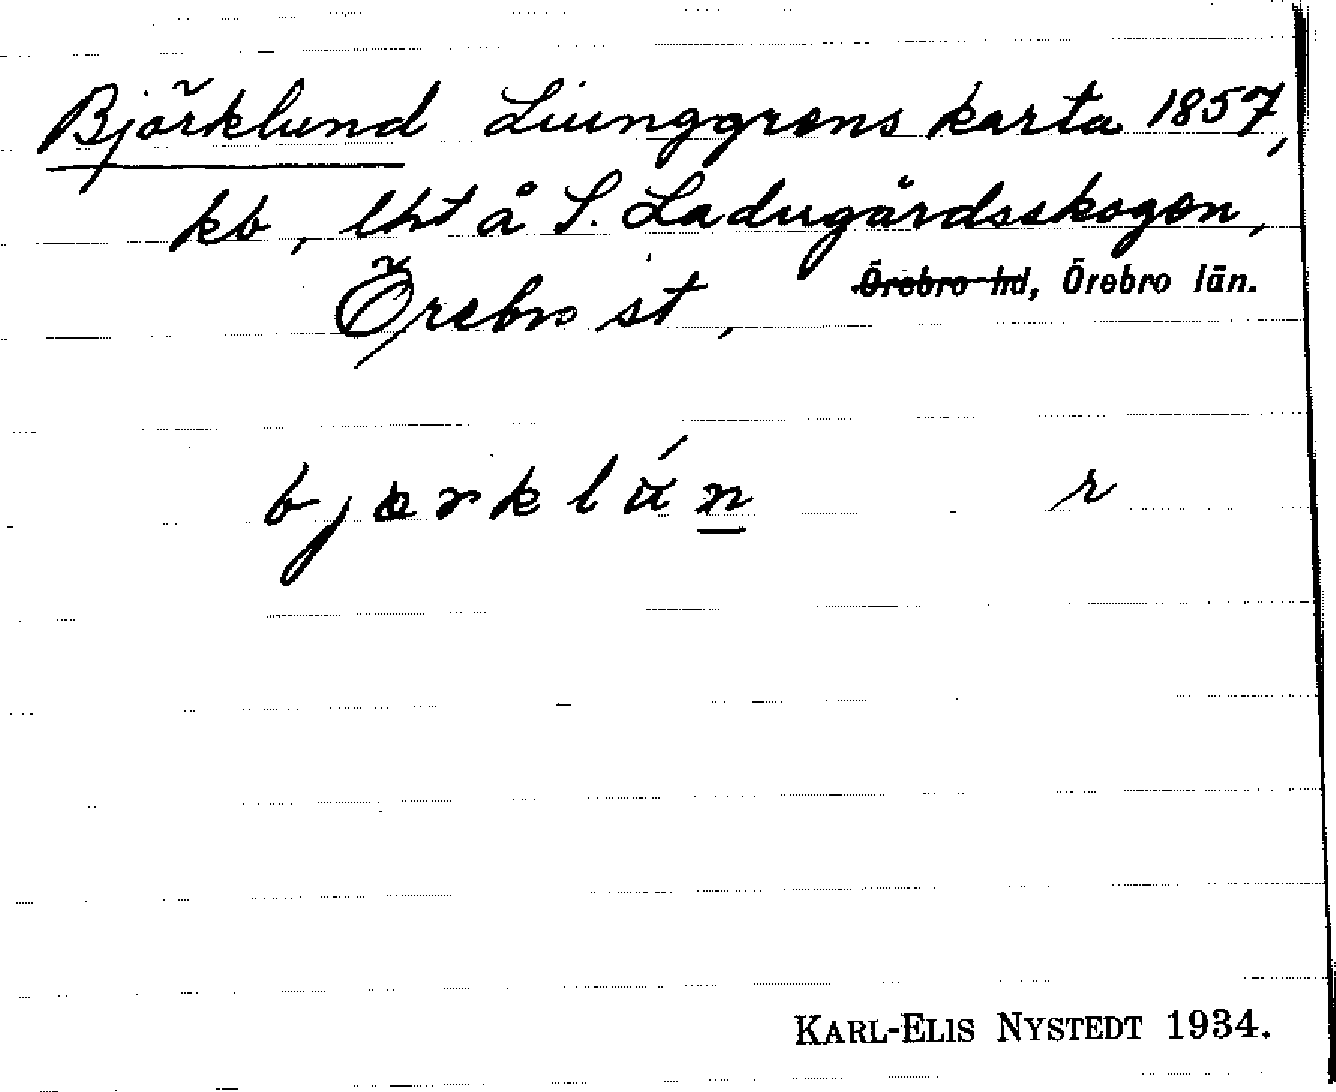 Björklund Liunggrens karta 1857,
kb, lht å S. Ladugårdsskogen,
Örebro st, Örebro hd, Örebro län.
bjɵrklún̲ r
KARL-ELIS NYSTEDT 1934.